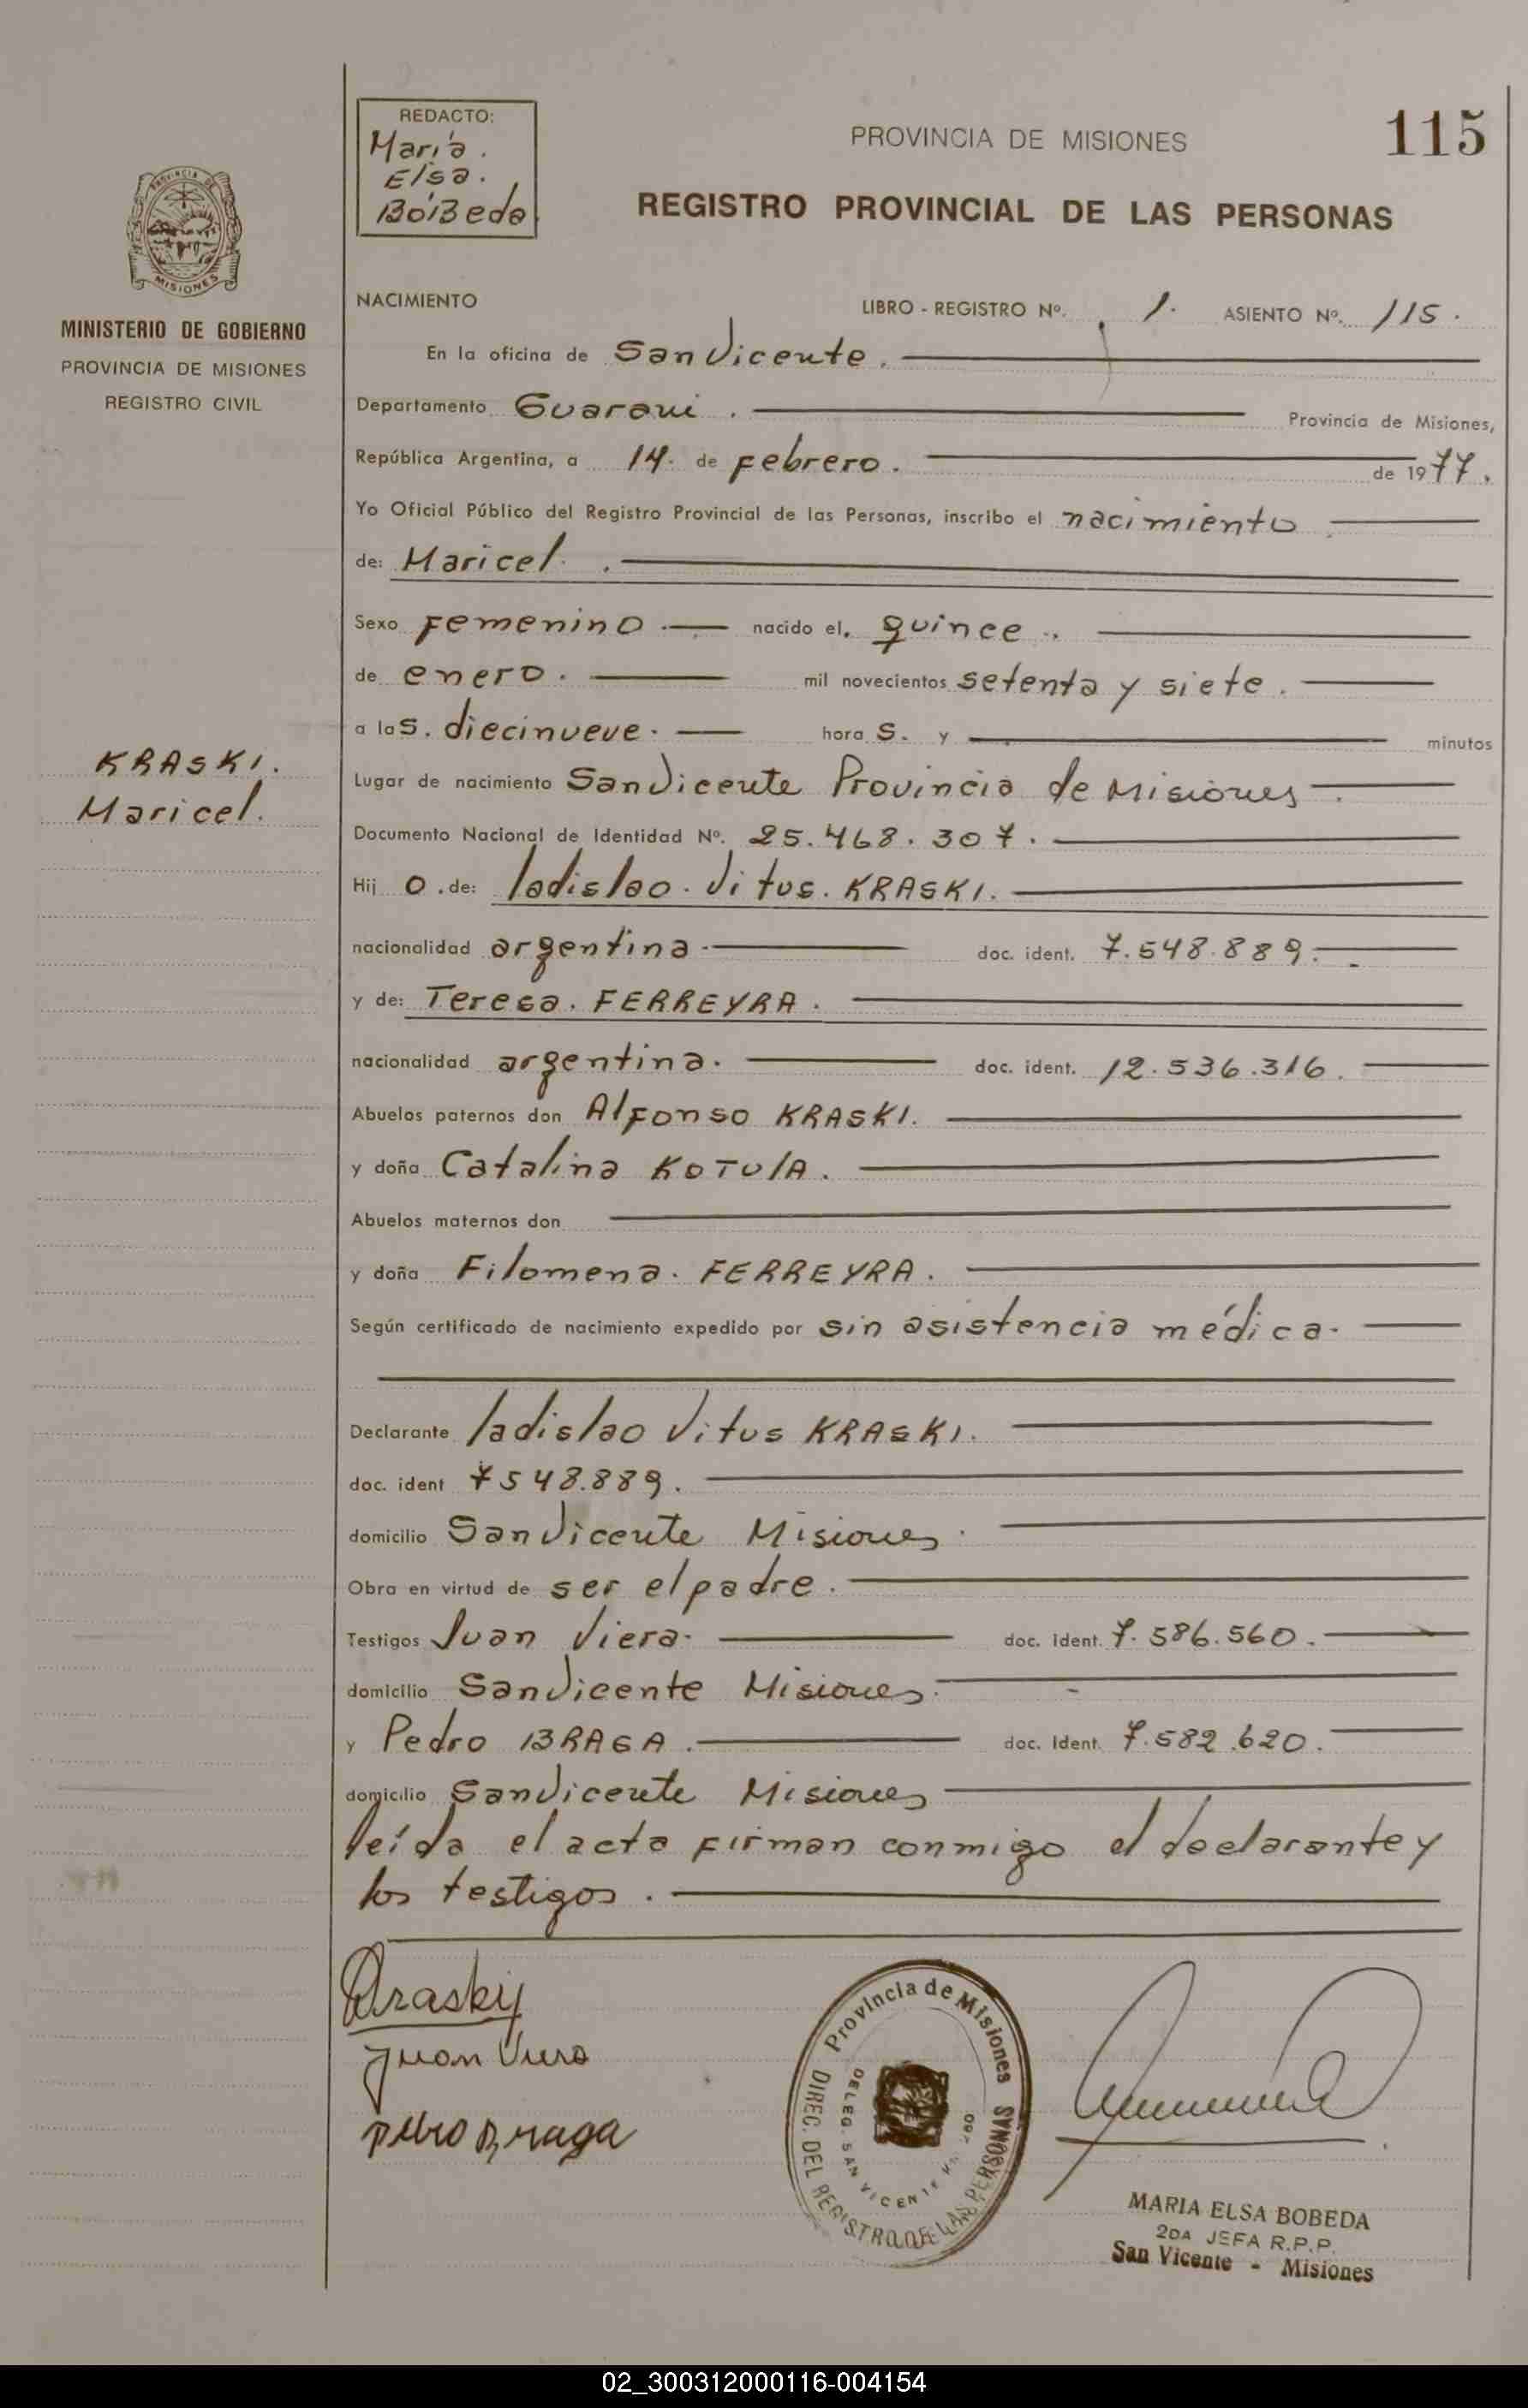 REDACTO:
Maria.
Elsa.
BoBeda
PROVINCIA DE MISIONES
115
REGISTRO PROVINCIAL DE LAS PERSONAS
PROVINCIA DE
MISIONES
MINISTERIO DE GOBIERNO
PROVINCIA DE MISIONES
REGISTRO CIVIL
KRASKI.
Maricel.
NACIMIENTO LIBRO - REGISTRO Nº. 1. ASIENTO Nº. 115.
En la oficina de San Vicente.
Departamento Guarani. Provincia de Misiones,
República Argentina, a 14. de Febrero. de 1977.
Yo Oficial Público del Registro Provincial de las Personas, inscribo el nacimiento
de: Maricel.
Sexo Femenino nacido el. quince.
de enero. mil novecientos setenta y siete.
a las. diecinueve. hora s. y minutos
Lugar de nacimiento San Vicente Provincia de Misiones.
Documento Nacional de Identidad Nº. 25.468.307.
Hij o. de: ladislao. Vitus. KRASKI.
nacionalidad argentina. doc. ident. 7.548.889.
y de: Teresa. FERREYRA.
nacionalidad argentina. doc. ident. 12.536.316.
Abuelos paternos don Alfonso KRASKI.
y doña Catalina KOTULA.
Abuelos maternos don
y doña Filomena. FERREYRA.
Según certificado de nacimiento expedido por sin asistencia médica.
Declarante ladislao Vitus KRASKI.
doc. ident 7548.889.
domicilio San Vicente Misiones.
Obra en virtud de ser el padre.
Testigos Juan Viera. doc. ident. 7.586.560.
domicilio San Vicente Misiones.
y Pedro BRAGA. doc. Ident. 7.582.620.
domicilio San Vicente Misiones
leída el acta Firman conmigo el declarante y
los testigos.
Krasky
Juan Viera
pedro Braga
Provincia de Misiones
DIREC. DEL REGISTRO DE LAS PERSONAS
DELEG. SAN VICENTE
MARIA ELSA BOBEDA
2DA JEFA R.P.P.
San Vicente - Misiones
02_300312000116-004154